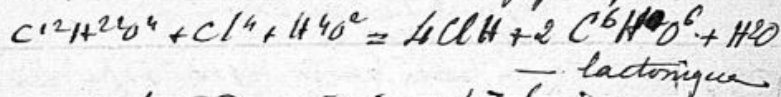 C¹²H²²O⁴ + Cl⁴ + H⁴O² = 4ClH + 2 C⁶H¹⁰O⁶ + H²O
— lactonique